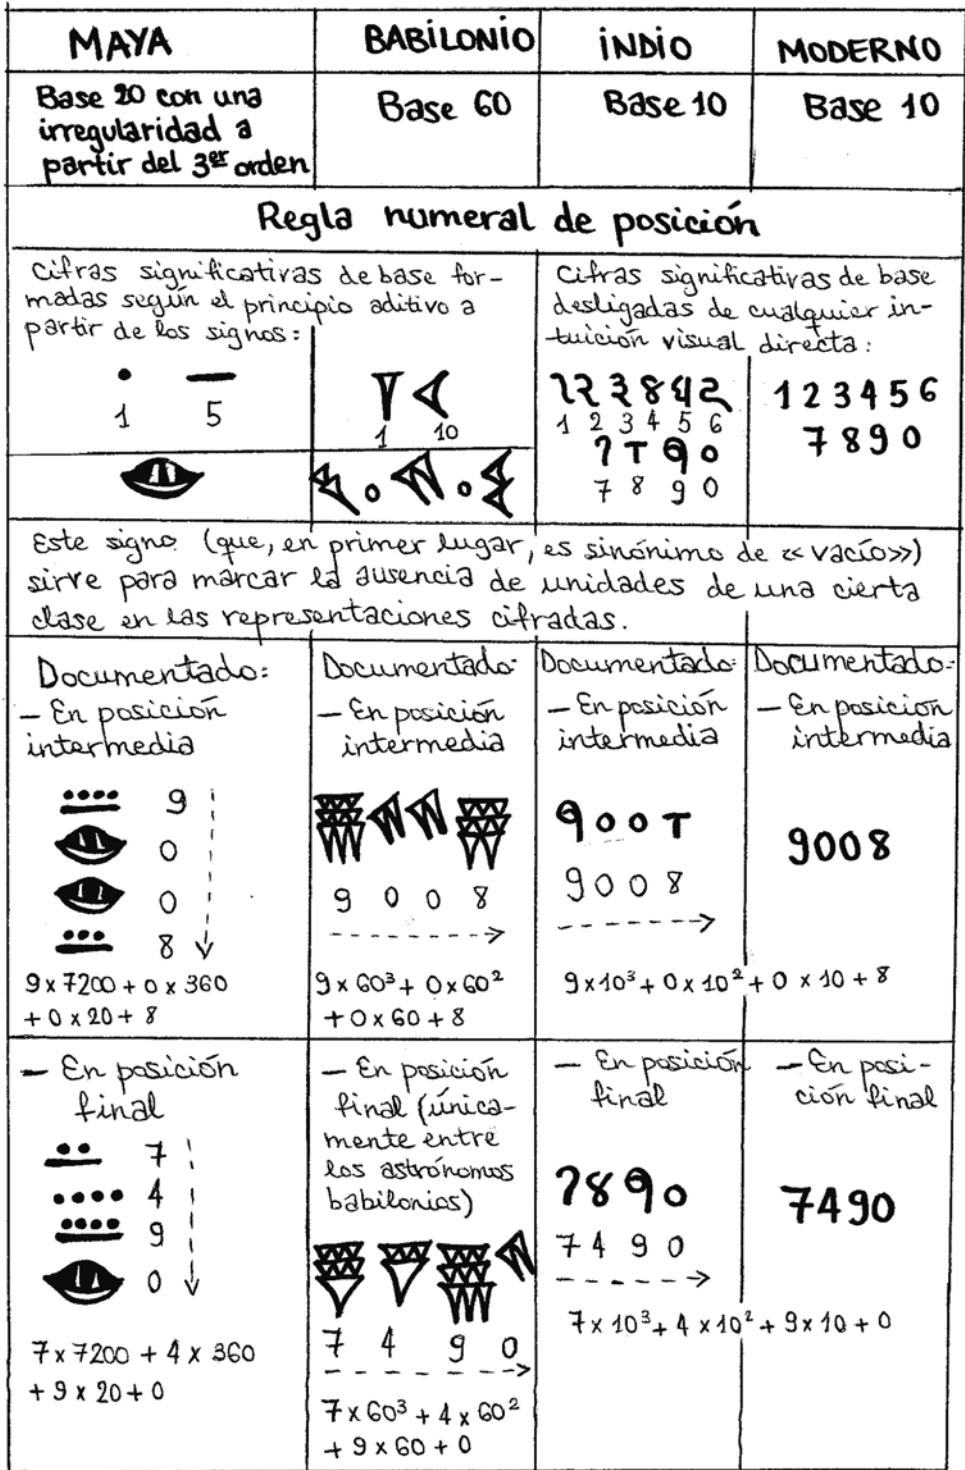 MAYA
BABILONIO
INDIO
MODERNO
Base 20 con una
irregularidad a
partir del 3er orden
Base 60
Base 10
Base 10
Regla numeral de posición
Cifras significativas de base for-
madas según el principio aditivo a
partir de los signos:
1 5
1 10
Cifras significativas de base
desligadas de cualquier in-
tuición visual directa:
1 2 3 4 5 6
7 8 9 0
1 2 3 4 5 6
7 8 9 0
Este signo (que, en primer lugar, es sinónimo de «vacío»)
sirve para marcar la ausencia de unidades de una cierta
clase en las representaciones cifradas.
Documentado:
– En posición
intermedia
9
0
0
8
9 x 7200 + 0 x 360
+ 0 x 20 + 8
Documentado:
– En posición
intermedia
9 0 0 8
9 x 60³ + 0 x 60²
+ 0 x 60 + 8
Documentado:
– En posición
intermedia
9 0 0 8
Documentado:
– En posición
intermedia
9008
9 x 10³ + 0 x 10² + 0 x 10 + 8
– En posición
final
7
4
9
0
7 x 7200 + 4 x 360
+ 9 x 20 + 0
– En posición
final (única-
mente entre
los astrónomos
babilonios)
7 4 9 0
7 x 60³ + 4 x 60²
+ 9 x 60 + 0
– En posición
final
7 4 9 0
– En posi-
ción final
7490
7 x 10³ + 4 x 10² + 9 x 10 + 0